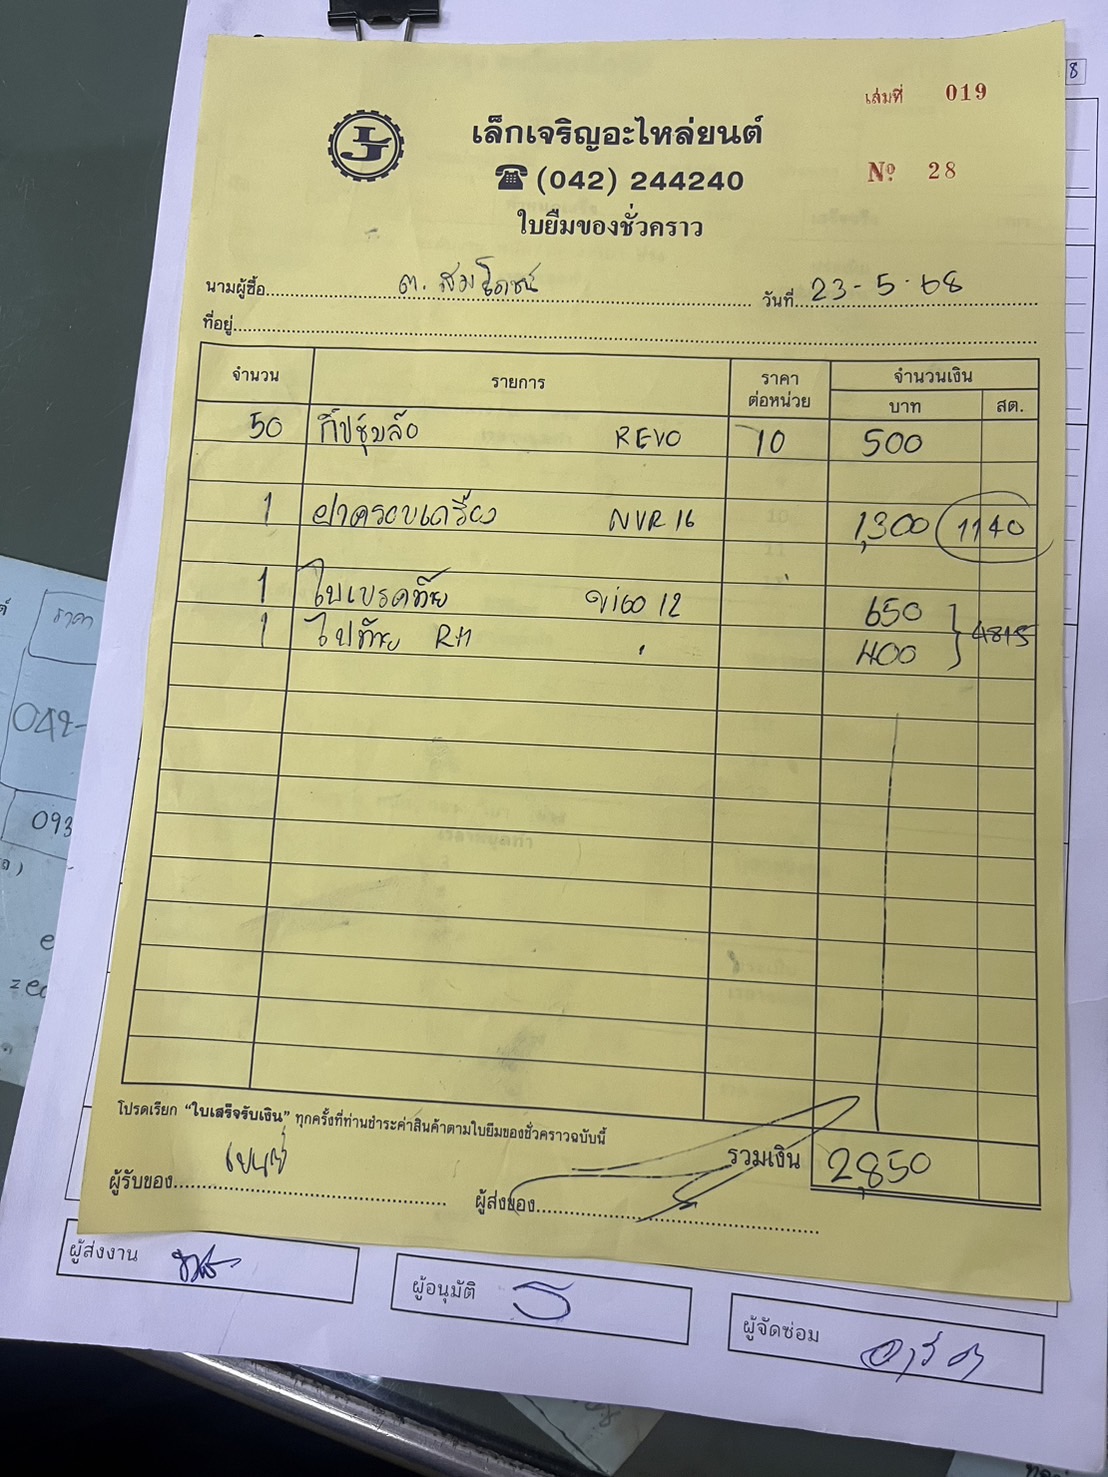 8
เล่มที่ 019
เล็กเจริญอะไหล่ยนต์
(042) 244240
Nº 28
ใบยืมของชั่วคราว
นามผู้ซื้อ ต. สมโภชน์ วันที่ 23-5-68
ที่อยู่
จำนวน รายการ ราคาต่อหน่วย จำนวนเงิน
บาท สต.
50 กิ๊ปซุ้มล้อ REVO 10 500
1 ฝาครอบเครื่อง NVR 16 1,300 1140
1 ใบเบรคท้าย vigo 12 650
1 ไฟท้าย RH " 400 4815
โปรดเรียก "ใบเสร็จรับเงิน" ทุกครั้งที่ท่านชำระค่าสินค้าตามใบยืมของชั่วคราวฉบับนี้
รวมเงิน 2,850
ผู้รับของ
ผู้ส่งของ
ผู้ส่งงาน
ผู้อนุมัติ
ผู้จัดซ่อม
ราคา
042-
093